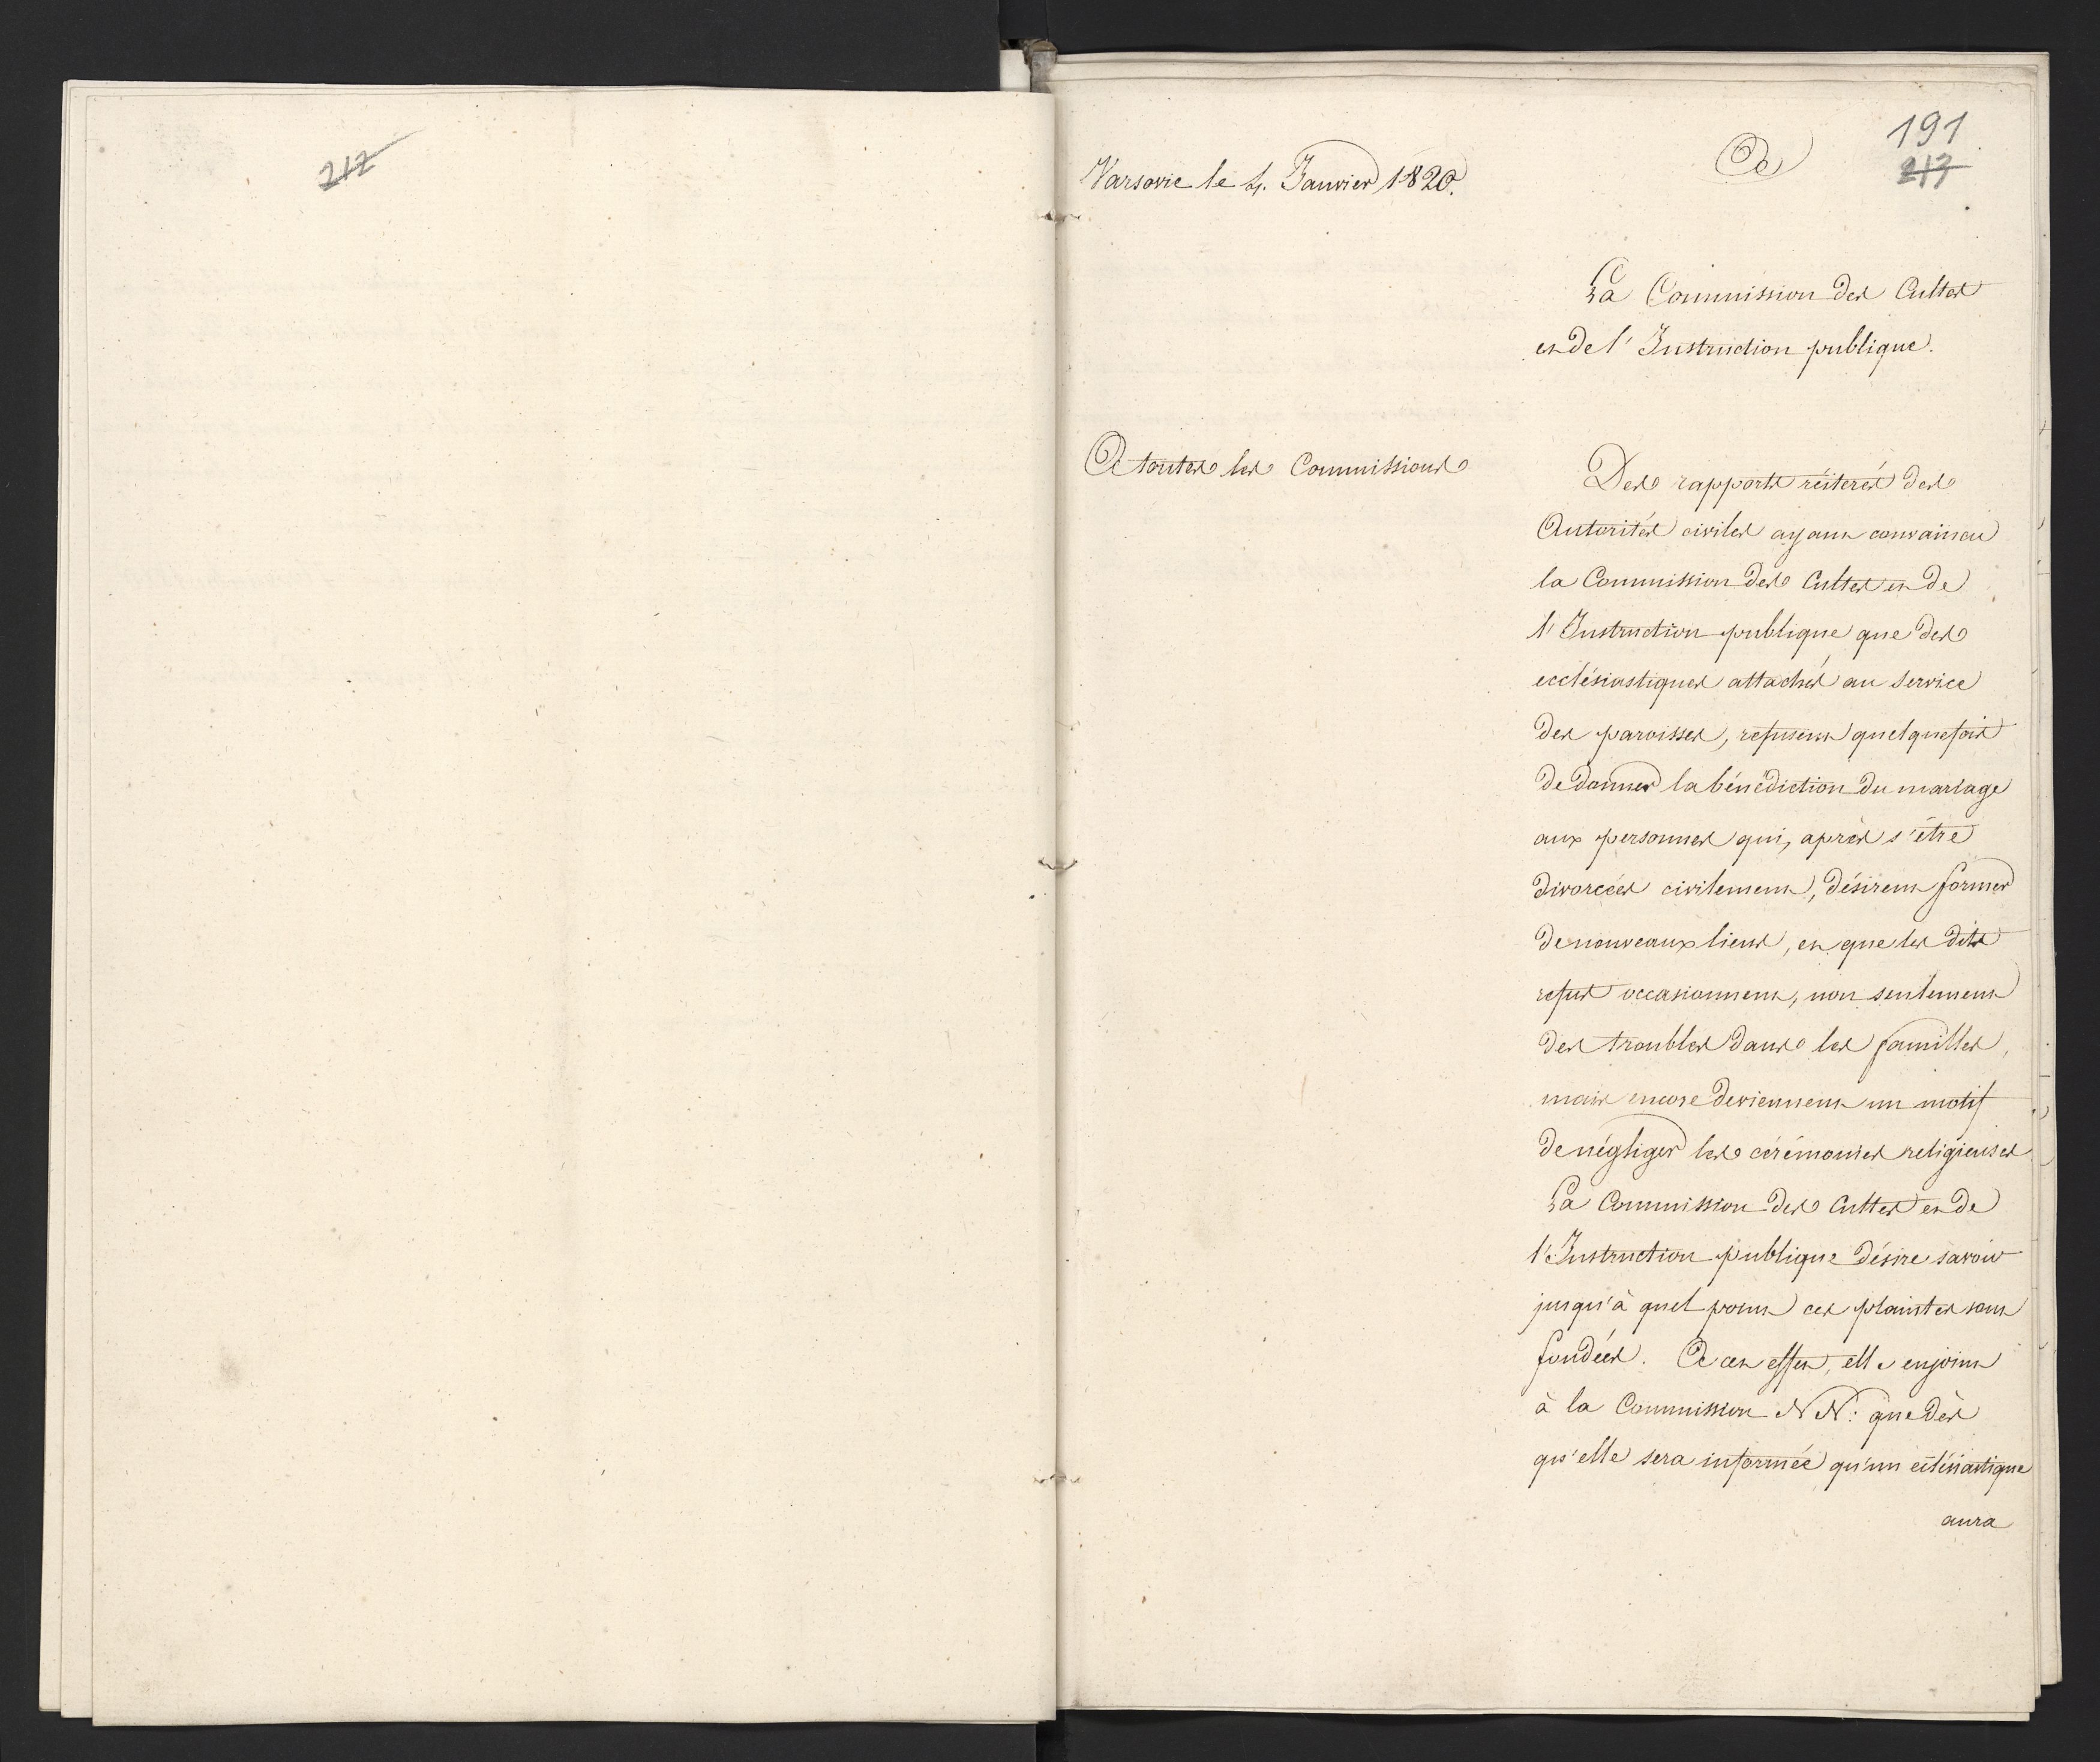 212
191
217
Varsovie le 4. Janvier 1820.
A
La Commission des Cultes
et de l'Instruction publique.
A toutes les Commissions
Des rapports réiterés des
Autorités civiles ayant convaincu
la Commission des Cultes et de
l'Instruction publique que des
ecclésiastiques attachés au service
des paroisses, refusent quelquefois
de donner la bénédiction du mariage
aux personnes qui, après s'être
divorcées civilement, désirent former
de nouveaux liens, et que les dits
refus occasionnent, non seulement
des troubles dans les familles,
mais encore deviennent un motif
de négliger les cérémonies religieuses
La Commission des Cultes et de
l'Instruction publique désire savoir
jusqu'à quel point ces plaintes sont
fondées. A cet effet, elle enjoint
à la Commission N N: que dès
qu'elle sera informée qu'un eclésiastique
aura